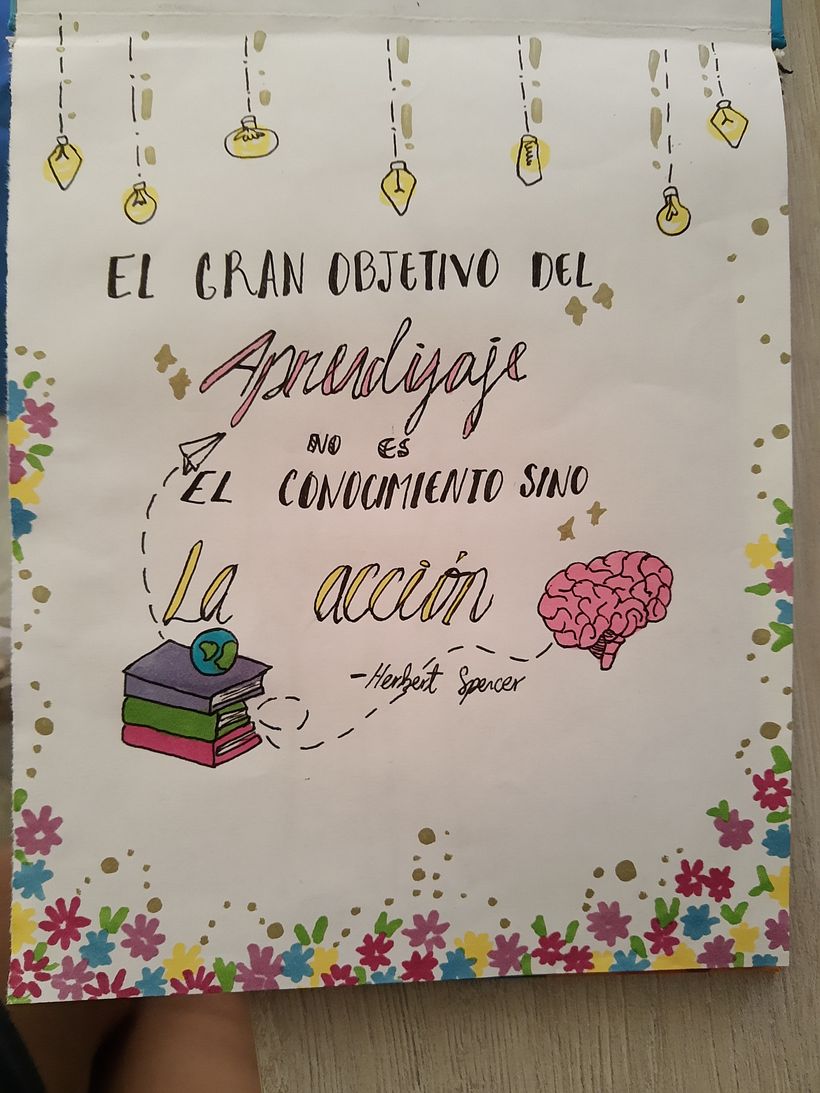 EL GRAN OBJETIVO DEL
Aprendizaje
NO ES
EL CONOCIMIENTO SINO
La acción
-Herbért Spencer